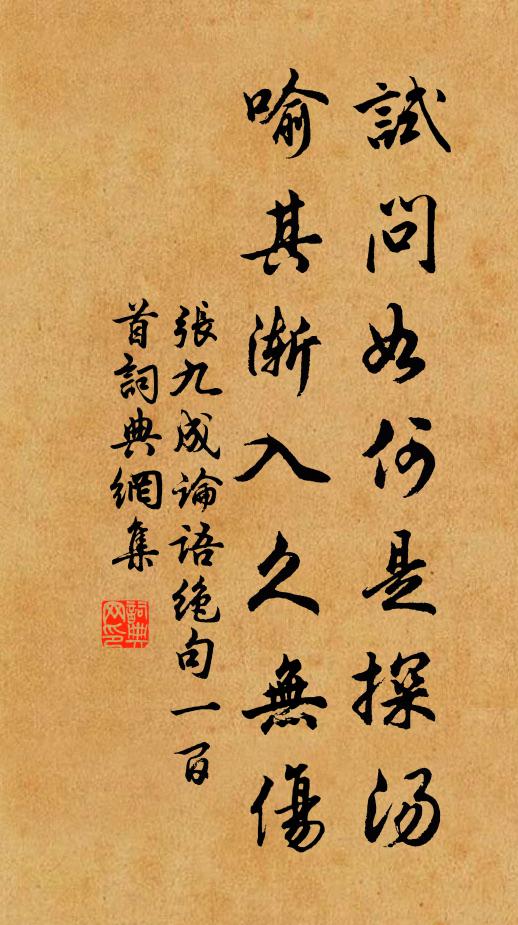 試問如何是探汤
喻其漸入久無傷
張九成論語绝句一百
首詞典網集
詞典网印